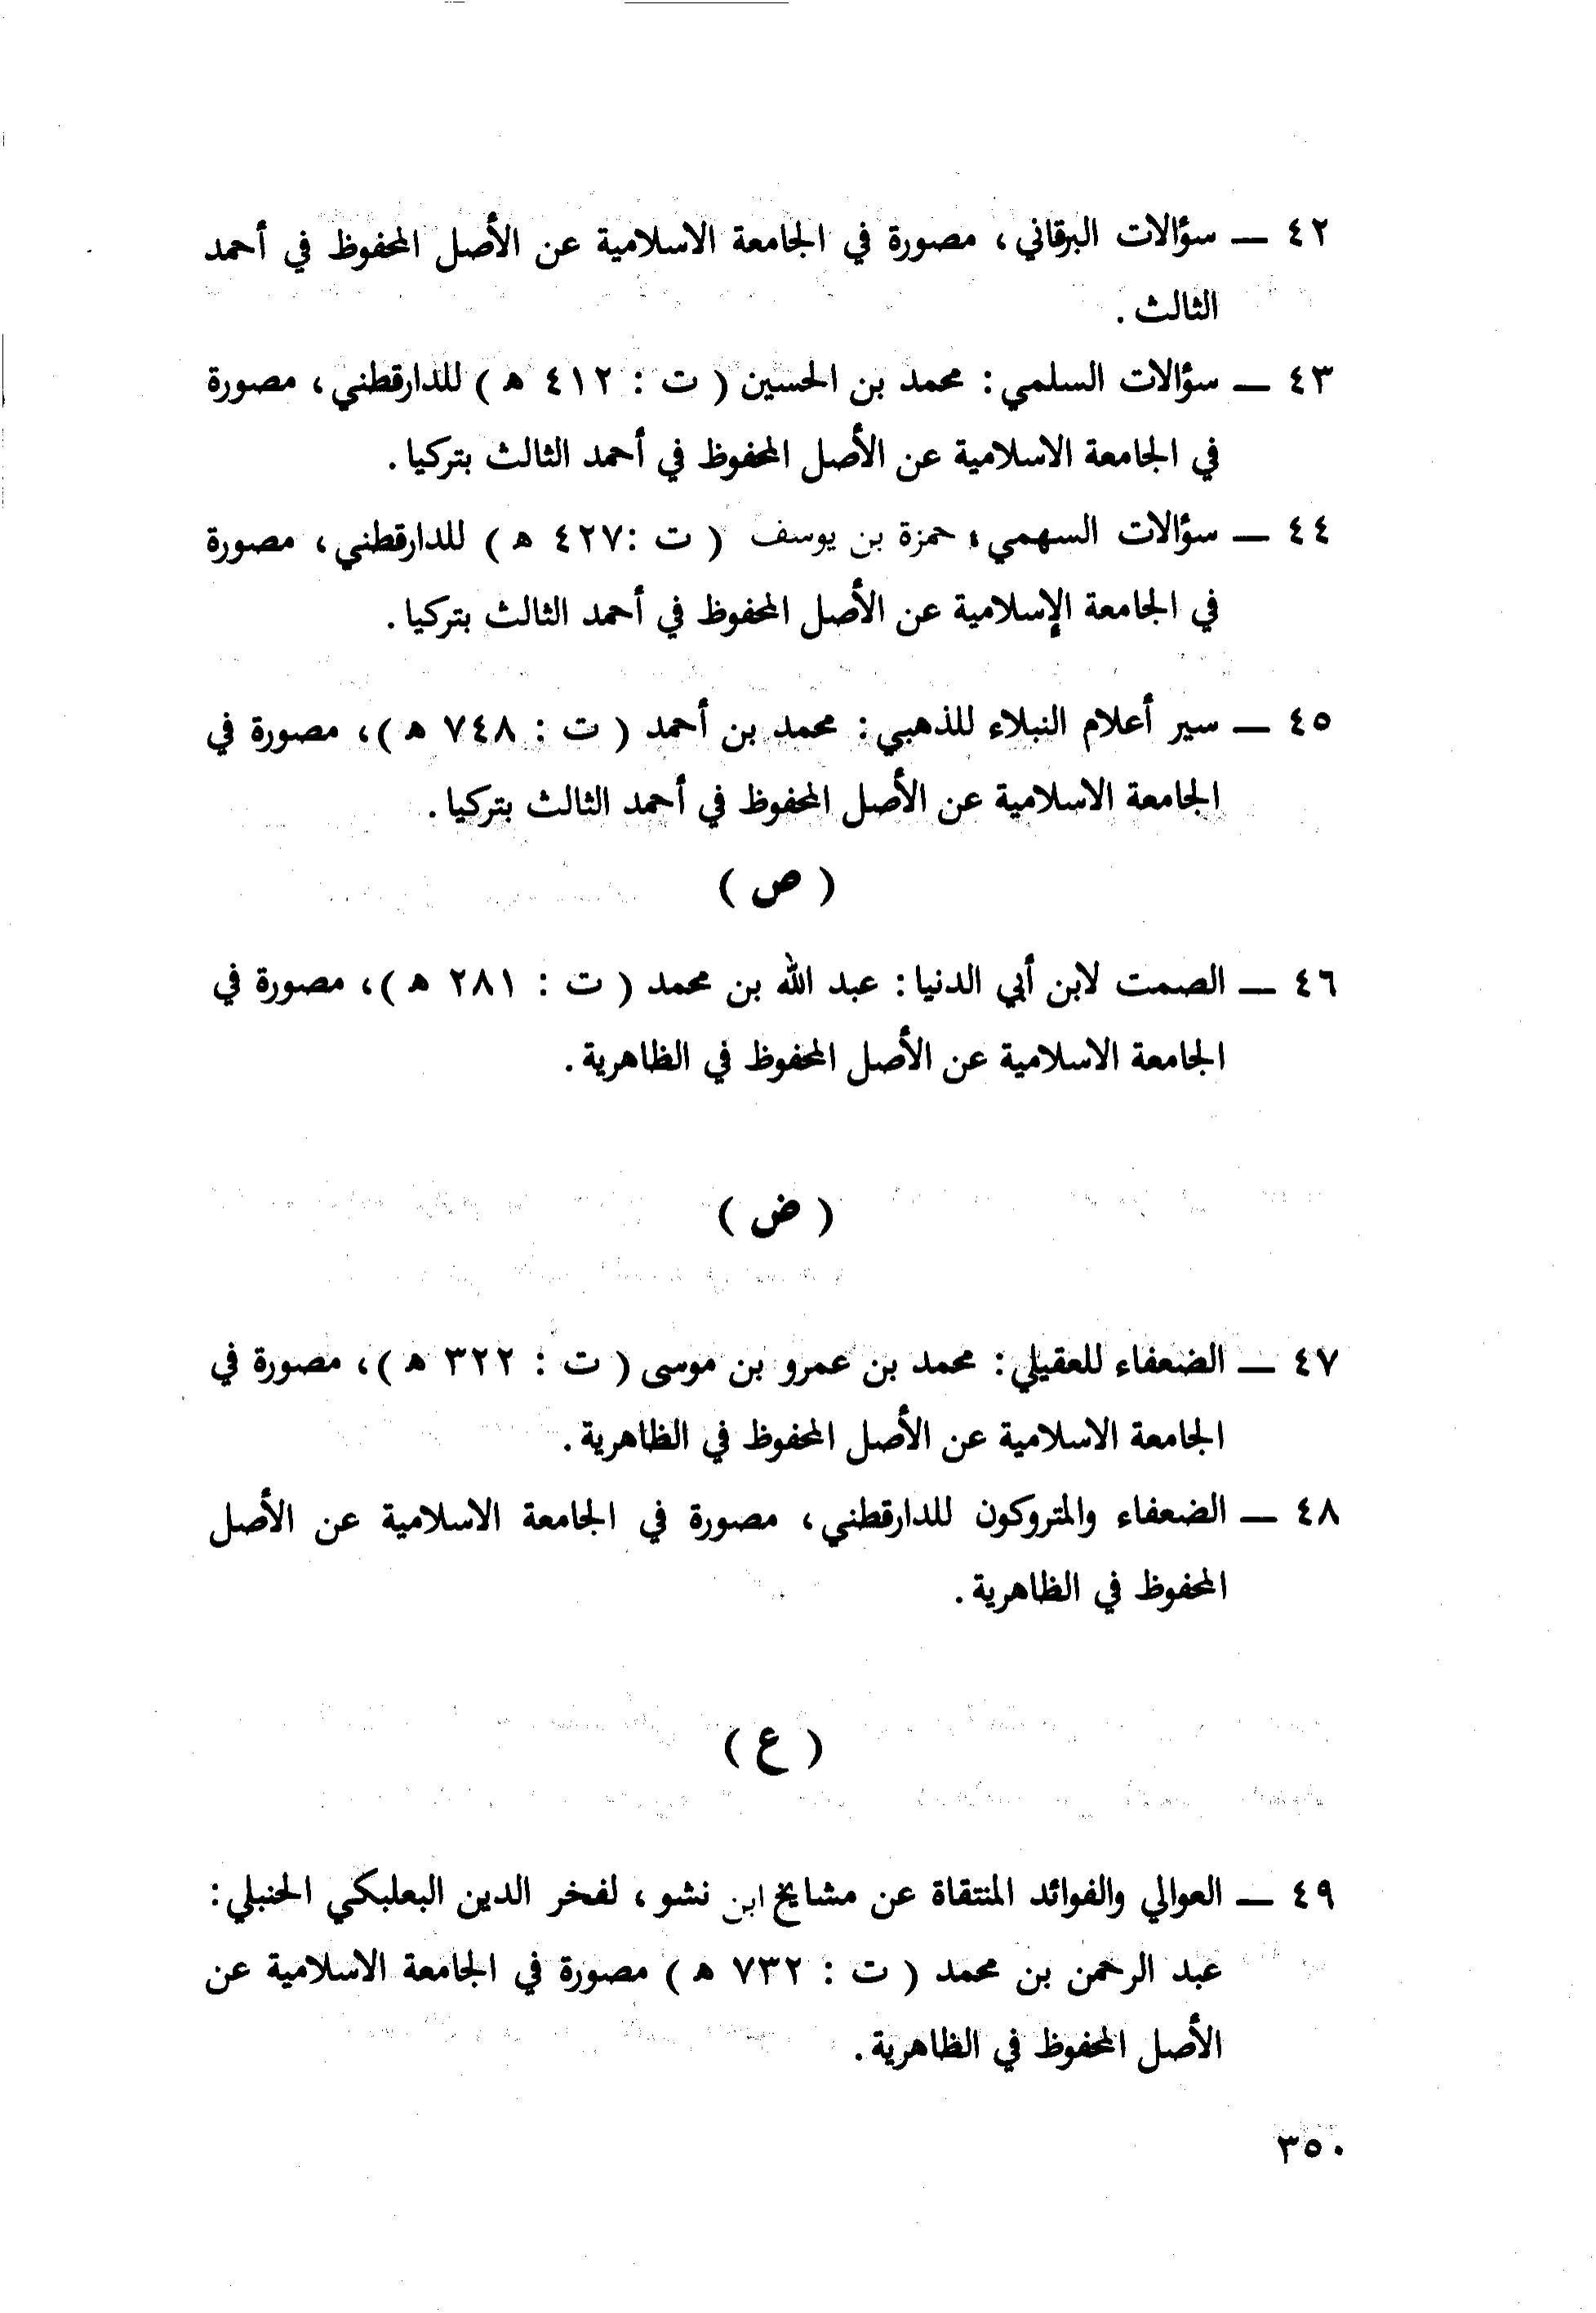 ٤٢ — سؤالات البرقاني، مصورة في الجامعة الاسلامية عن الأصل المحفوظ في أحمد
الثالث .
٤٣ — سؤالات السلمي: محمد بن الحسين ( ت : ٤١٢ ه ) للدارقطني، مصورة
في الجامعة الاسلامية عن الأصل المحفوظ في أحمد الثالث بتركيا .
٤٤ — سؤالات السهمي، حمزة بن يوسف ( ت :٤٢٧ ه ) للدارقطني، مصورة
في الجامعة الإسلامية عن الأصل المحفوظ في أحمد الثالث بتركيا .
٤٥ — سير أعلام النبلاء للذهبي: محمد بن أحمد ( ت : ٧٤٨ ه )، مصورة في
الجامعة الاسلامية عن الأصل المحفوظ في أحمد الثالث بتركيا .
( ص )
٤٦ — الصمت لابن أبي الدنيا: عبد الله بن محمد ( ت : ٢٨١ ه )، مصورة في
الجامعة الاسلامية عن الأصل المحفوظ في الظاهرية .
( ض )
٤٧ — الضعفاء للعقيلي: محمد بن عمرو بن موسى ( ت : ٣٢٢ ه )، مصورة في
الجامعة الاسلامية عن الأصل المحفوظ في الظاهرية .
٤٨ — الضعفاء والمتروكون للدارقطني، مصورة في الجامعة الاسلامية عن الأصل
المحفوظ في الظاهرية .
( ع )
٤٩ — العوالي والفوائد المنتقاة عن مشايخ ابن نشو، لفخر الدين البعلبكي الحنبلي:
عبد الرحمن بن محمد ( ت : ٧٣٢ ه ) مصورة في الجامعة الاسلامية عن
الأصل المحفوظ في الظاهرية .
٣٥٠